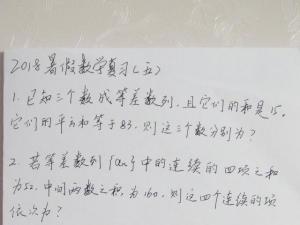 2018暑假数学复习(五)
1.已知三个数成等差数列,且它们的和是15,
它们的平方和等于83,则这三个数分别为?
2.若等差数列{an}中的连续的四项之和
为52,中间两数之积,为160,则这四个连续的项
依次为?